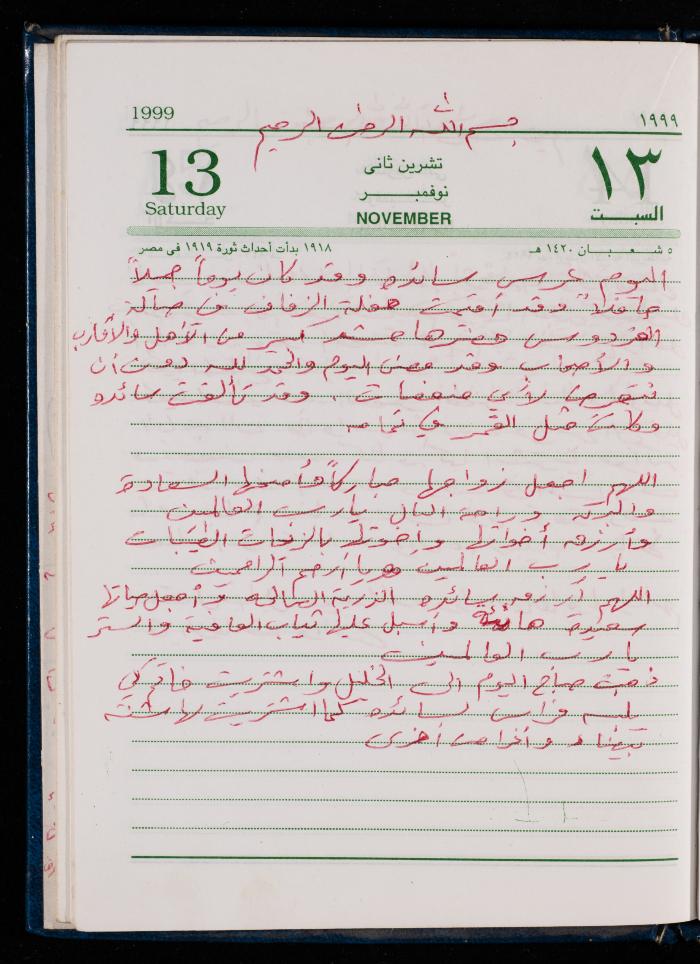 1999 ١٩٩٩
بسم الله الرحمن الرحيم
13 تشرين ثانى ١٣
نوفمبر
Saturday NOVEMBER السبت
٥ شعبان ١٤٢٠ هـ ١٩١٨ بدأت أحداث ثورة ١٩١٩ فى مصر
اليوم عرس سائده وقد كان يوماً جميلاً
حافلاً وقد أقيمت حفلة الزفاف في صالة
الفردوس حضرها حشد كبير من الأهل والأقارب
والأصحاب وقد مضى اليوم والحمد لله دون أن
نتعرض لأي منغصات. وقد تألقت سائده
وكانت مثل القمر في تمامه
اللهم اجعل زواجها مباركاً وأمنحها السعادة
والبركة وراحة البال يا رب العالمين
وأرزق أخواتها وإخوتها بالزيجات الطيبات
يا رب العالمين ويا أرحم الراحمين
اللهم أرزق سائده الذرية الصالحة وأجعل حياتها
سعيدة هانئة وأسبل عليها ثياب العافية والستر
يا رب العالمين
ذهبت صباح اليوم الى الخليل واشتريت خاتم لكي
يلبسه فراس لسائده كما اشتريت لها شنته
بيضاء وأغراض أخرى